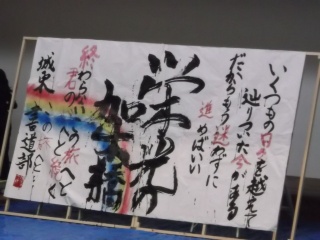 いくつもの日々を越えて
辿りついた今がある
だからもう迷わずに
進めばいい
栄光の
終わらないその旅へと
君の
へと続く
城東
書道部